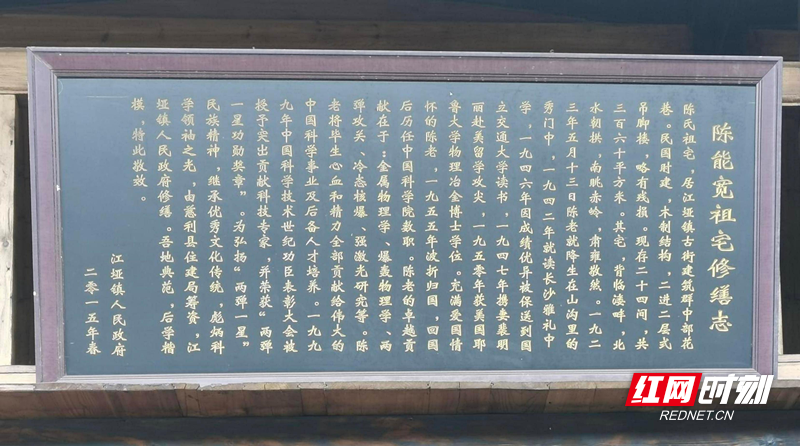 陈能宽祖宅修缮志
陈氏祖宅，居江垭镇古街建筑群中部花
巷。民国时建，木制结构，二进二层式
吊脚楼，略有残损。现存二十四间，共
三百六十平方米。其宅，背临溇畔，北
水朝拱，南眺赤岭，肃雍散然。一九二
三年五月十三日陈老就降生在山沟里的
秀门中，一九四二年就读长沙雅礼中
学，一九四六年因成绩优异被保送到国
立交通大学读书，一九四七年携妻裴明
丽赴美留学攻尖，一九五零年获美国耶
鲁大学物理冶金博士学位。充满爱国情
怀的陈老，一九五五年波折归国，回国
后历任中国科学院教职。陈老的卓越贡
献在于：金属物理学、爆轰物理学、两
弹攻关、冷态核爆、强激光研究等。陈
老将毕生心血和精力全部贡献给伟大的
中国科学事业及后备人才培养。一九九
九年中国科学技术世纪功臣表彰大会被
授予突出贡献科技专家，并荣获“两弹
一星功勋奖章”。为弘扬“两弹一星”
民族精神，继承优秀文化传统，彪炳科
学领袖之光，由慈利县住建局筹资，江
垭镇人民政府修缮。吾地典范，后学楷
模，特此敬效。
江垭镇人民政府
二零一五年春
红网时刻
REDNET.CN